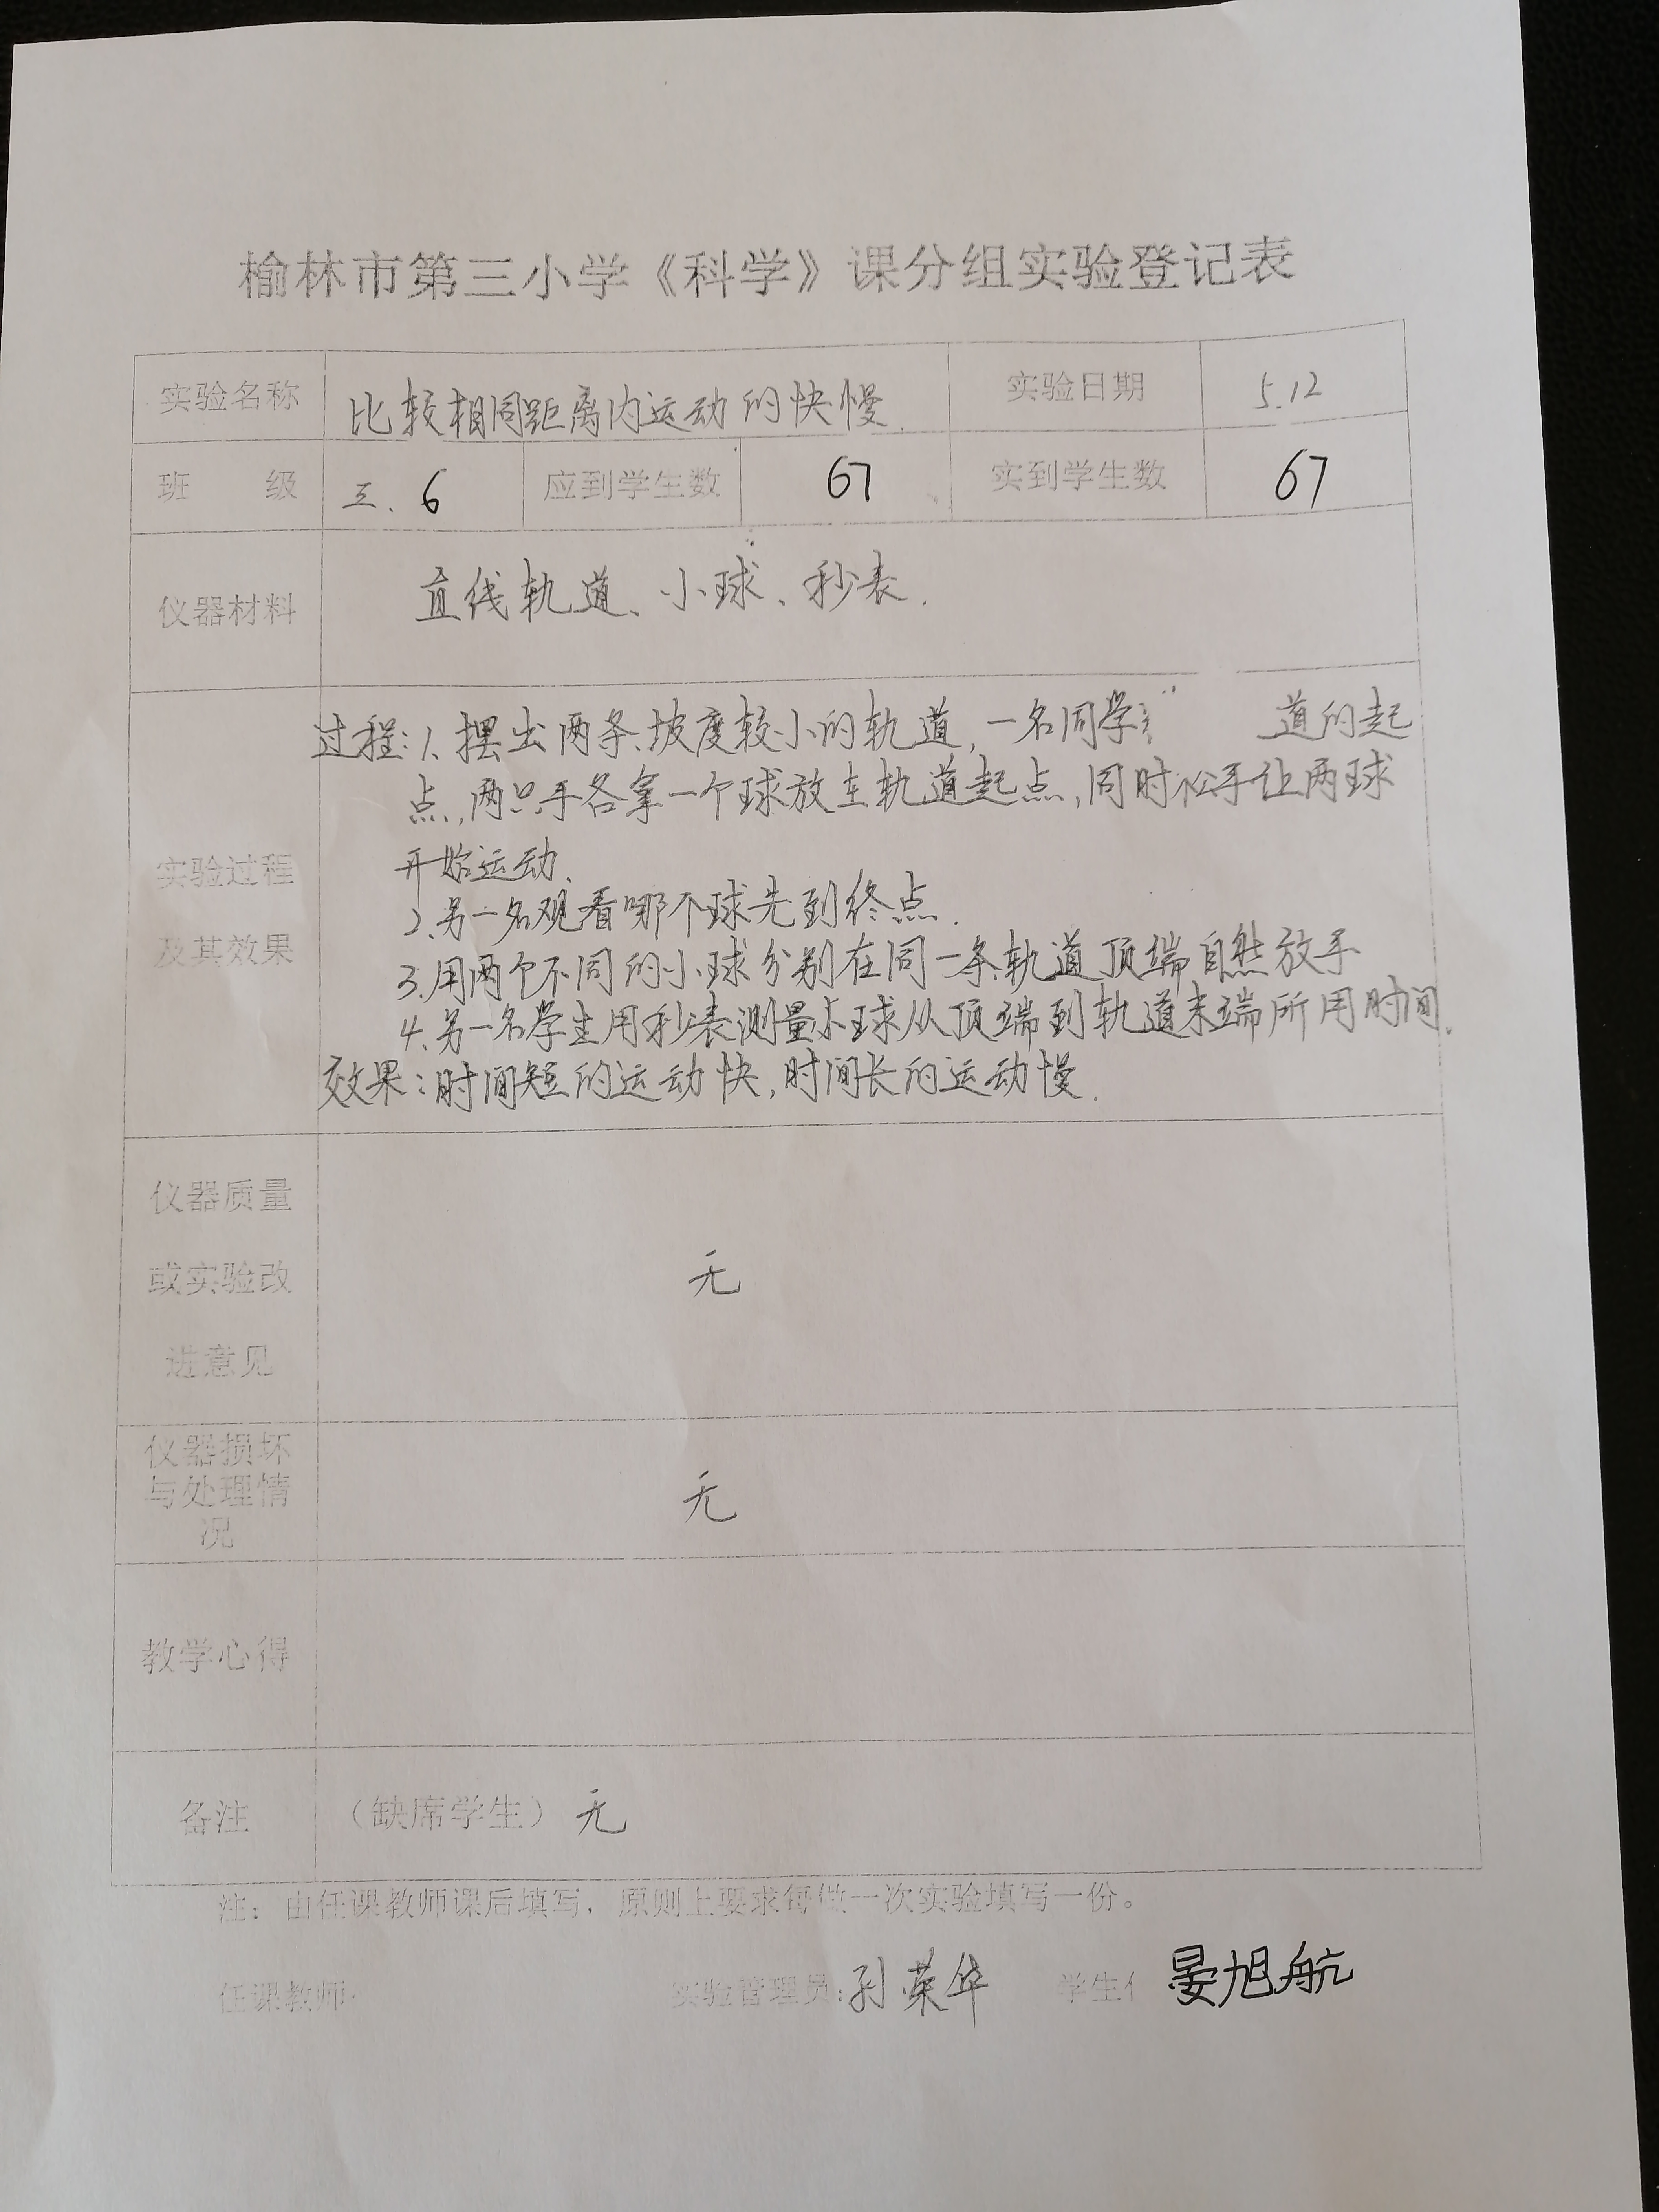 榆林市第三小学《科学》课分组实验登记表
实验名称 比较相同距离内运动的快慢. 实验日期 5.12
班 级 三.6 应到学生数 67 实到学生数 67
仪器材料 直线轨道、小球、秒表.
过程:1.摆出两条坡度较小的轨道,一名同学 道的起
点,两只手各拿一个球放在轨道起点,同时松手让两球
开始运动.
2.另一名观看哪个球先到终点.
3.用两个不同的小球分别在同一条轨道顶端自然放手
4.另一名学生用秒表测量小球从顶端到轨道末端所用时间.
效果:时间短的运动快,时间长的运动慢.
实验过程
及其效果
仪器质量
或实验改
进意见
无
仪器损坏
与处理情
况
无
教学心得
备注 (缺席学生) 无
注: 由任课教师课后填写, 原则上要求每做一次实验填写一份。
任课教师 实验管理员:孙荣华 学生 晏旭航